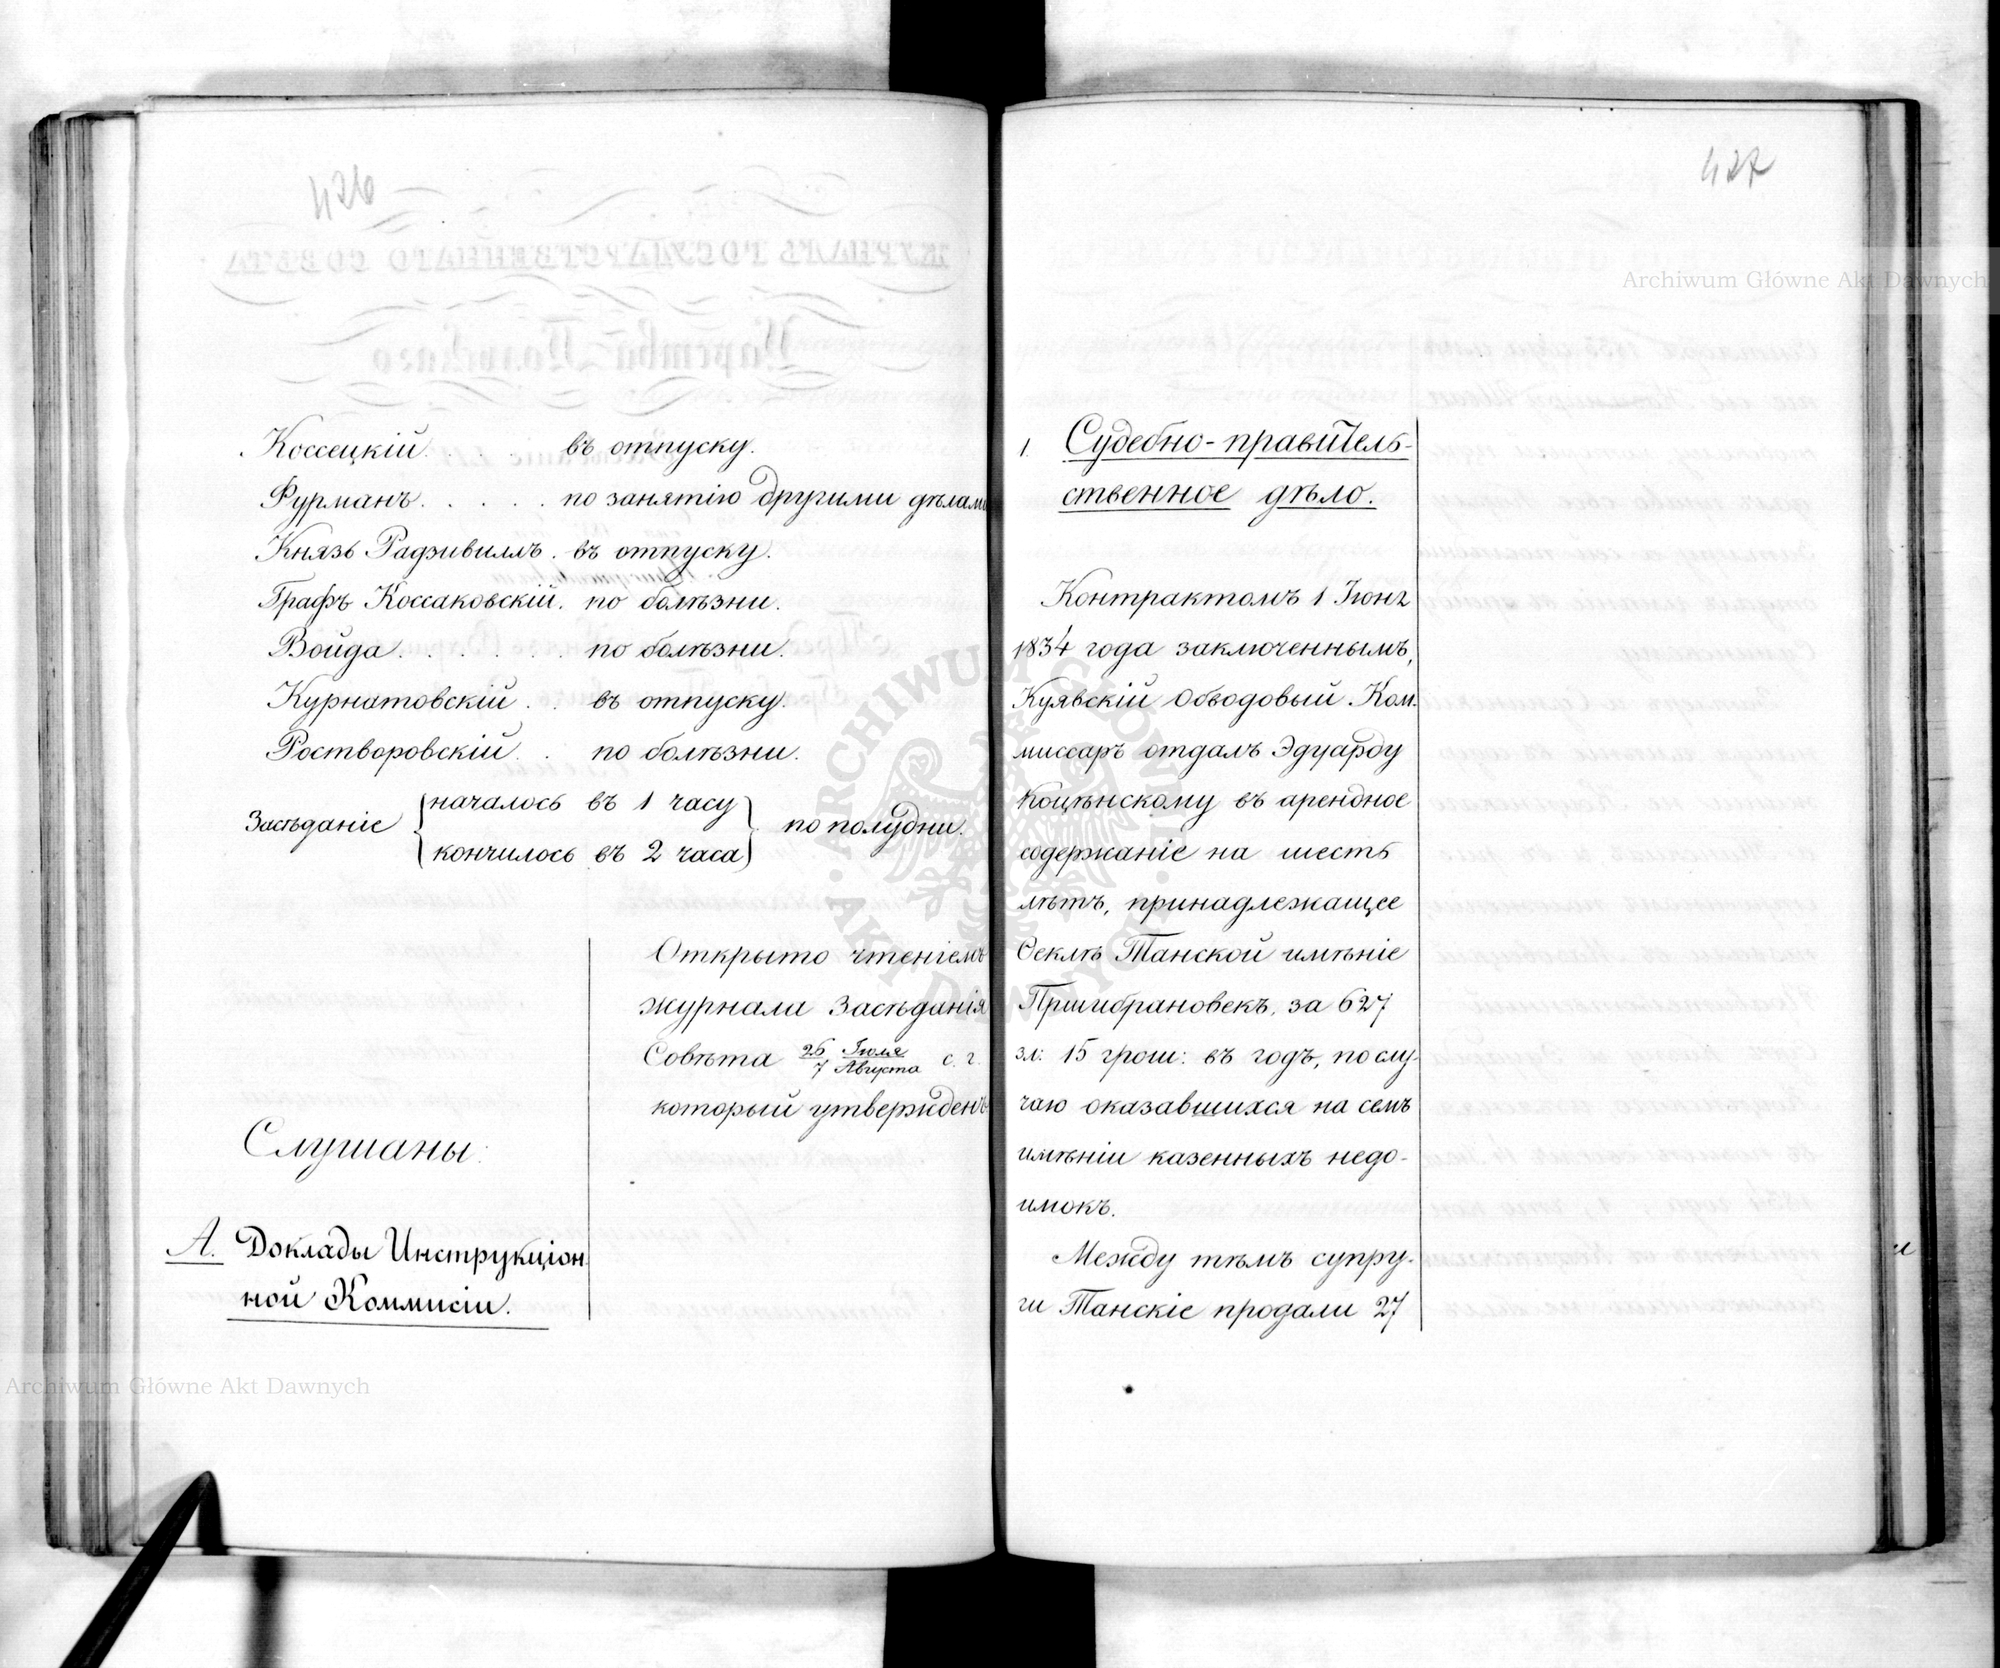 426
Коссецкій . . . . въ отпуску.
Фурманъ . . . . . по занятію другими дѣлами
Князь Радзивиллъ . въ отпуску.
Графъ Коссаковскій. по болѣзни.
Войда . . . . . . по болѣзни.
Курнатовскій . . въ отпуску.
Ростворовскій . . по болѣзни.
Засѣданіе { началось въ 1 часу } по полудни.
кончилось въ 2 часа
Открыто чтеніемъ
журнала Засѣданія
Совѣта 26 Іюля / 7 Августа с. г.
который утвержденъ
Слушаны:
А. Доклады Инструкціон
ной Коммисіи.
427
1. Судебно-правитель-
ственное дѣло.
Контрактомъ 1 Іюня
1834 года заключеннымъ,
Куявскій Обводовый Ком-
миссаръ отдалъ Эдуарду
Коцѣнскому въ арендное
содержаніе на шесть
лѣтъ, принадлежащее
Ѳеклѣ Танской имѣніе
Пршибрановекъ, за 627
зл: 15 грош: въ годъ, по слу-
чаю оказавшихся на семъ
имѣніи казенныхъ недо-
имокъ.
Между тѣмъ супру-
ги Танскіе продали 27
Archiwum Główne Akt Dawnych
Archiwum Główne Akt Dawnych
ARCHIWUM GŁÓWNE AKT DAWNYCH